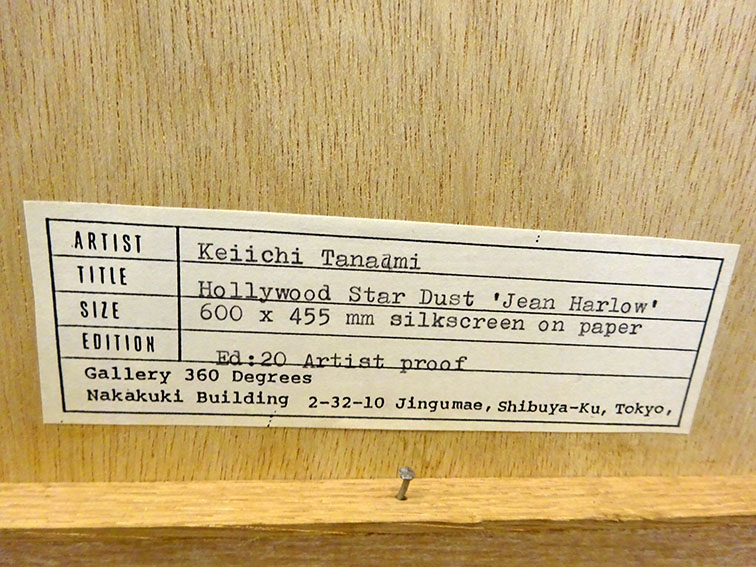 ARTIST Keiichi Tanaami
TITLE Hollywood Star Dust 'Jean Harlow'
SIZE 600 x 455 mm silkscreen on paper
EDITION Ed:20 Artist proof
Gallery 360 Degrees
Nakakuki Building 2-32-10 Jingumae, Shibuya-Ku, Tokyo,